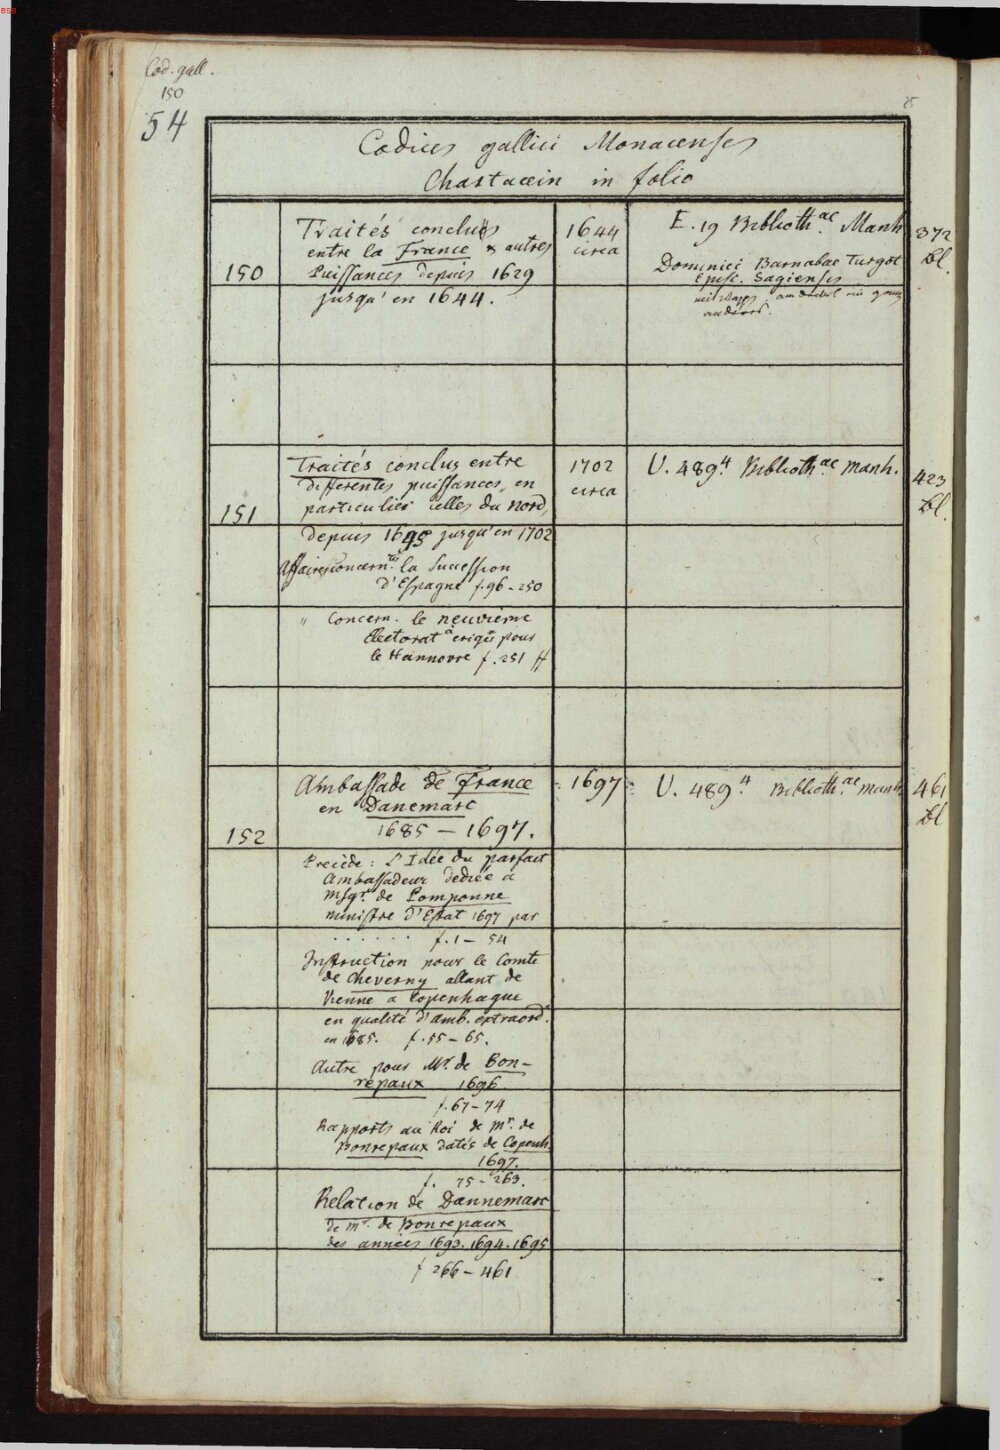 BSB
Cod. gall.
150
54
Codices gallici Monacenses
Chartacein in folio
150
Traités conclus
entre la France & autres
Puissances depuis 1629
jusqu'en 1644.
1644
circa
E. 19 Biblioth.ae Manh
Dominici Barnabae Turgot
Episc. Sagiensis
372
Bl.
151
Traités conclus entre
differentes puissances, en
particulier celles du nord,
depuis 1695 jusqu'en 1702
Affaires concern.tes la Succession
d'Espagne f. 96-250
" Concern. le neuvième
Electorat à erigé pour
le Hannovre f. 251 ff
1702
circa
U. 489.4 Biblioth.ae Manh.
423
Bl.
152
Ambassade de France
en Danemarc
1685 — 1697.
Precède: L'Idée du parfait
Ambassadeur dediée a
Msgr. de Pomponne
ministre d'Estat 1697 par
. . . . . . f. 1 - 54
Instruction pour le Comte
de Cheverny allant de
Vienne a Copenhague
en qualité d'amb. extraord.
en 1685. f. 55 - 65.
Autre pour Mr. de Bon-
repaux 1696.
f. 67-74
Rapports au Roi de Mr. de
Bonrepaux datés de Copenh.
1697.
f. 75 - 263.
Relation de Dannemarc
de Mr. de Bonrepaux
des années 1693. 1694. 1695
f 266 - 461
1697
U. 489.4 Biblioth.ae Manh.
461
Bl